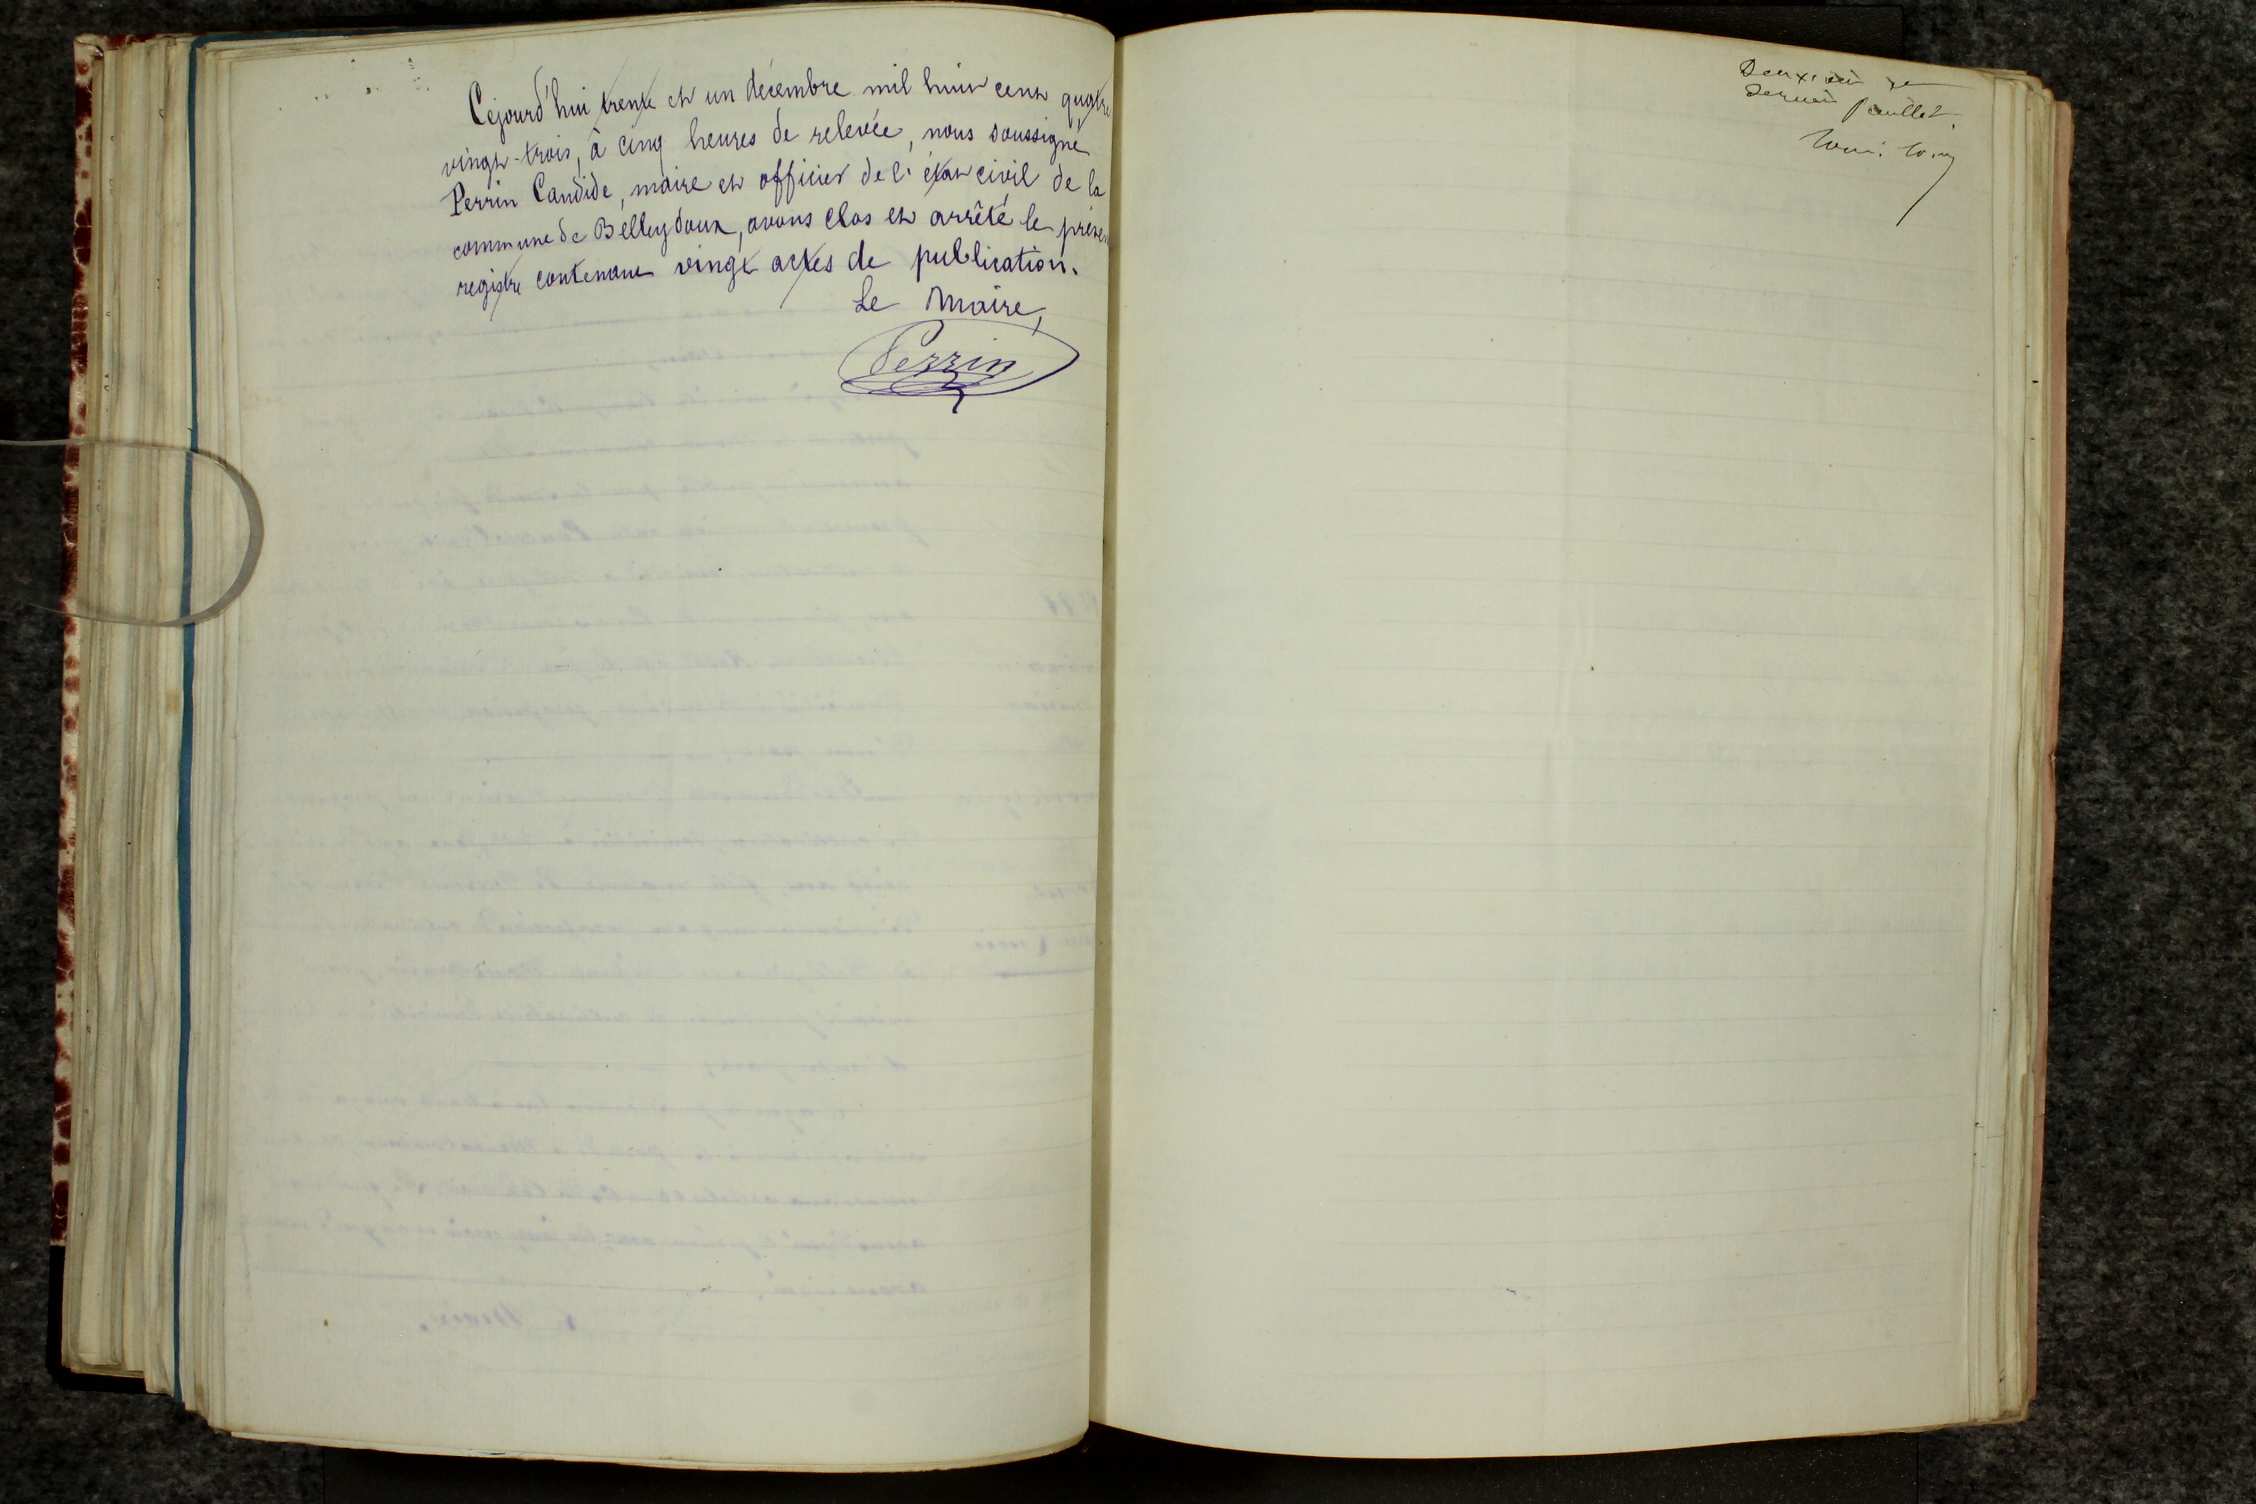 Cejourd'hui trente et un décembre mil huit cent quatre
vingt-trois, à cinq heures de relevée, nous soussigné
Perrin Candide, maire et officier de l'état civil de la
commune de Belleydoux, avons clos et arrêté le présen
registre contenant vingt actes de publication.
Le Maire,
Perrin
Deuxième et
dernier feuillet.